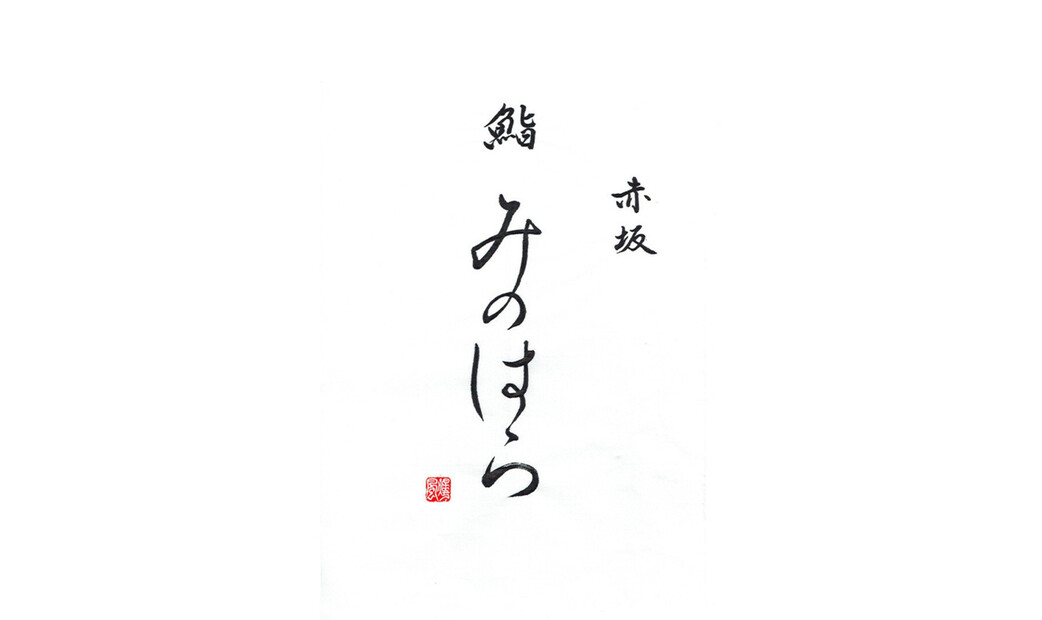 赤坂
鮨 みのはら